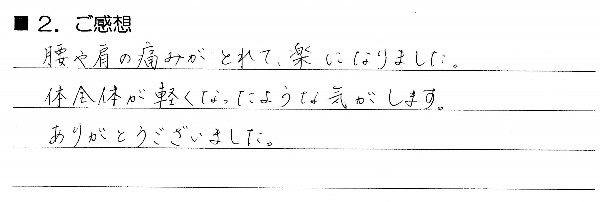 ■２．ご感想
腰や肩の痛みがとれて、楽になりました。
体全体が軽くなったような気がします。
ありがとうございました。